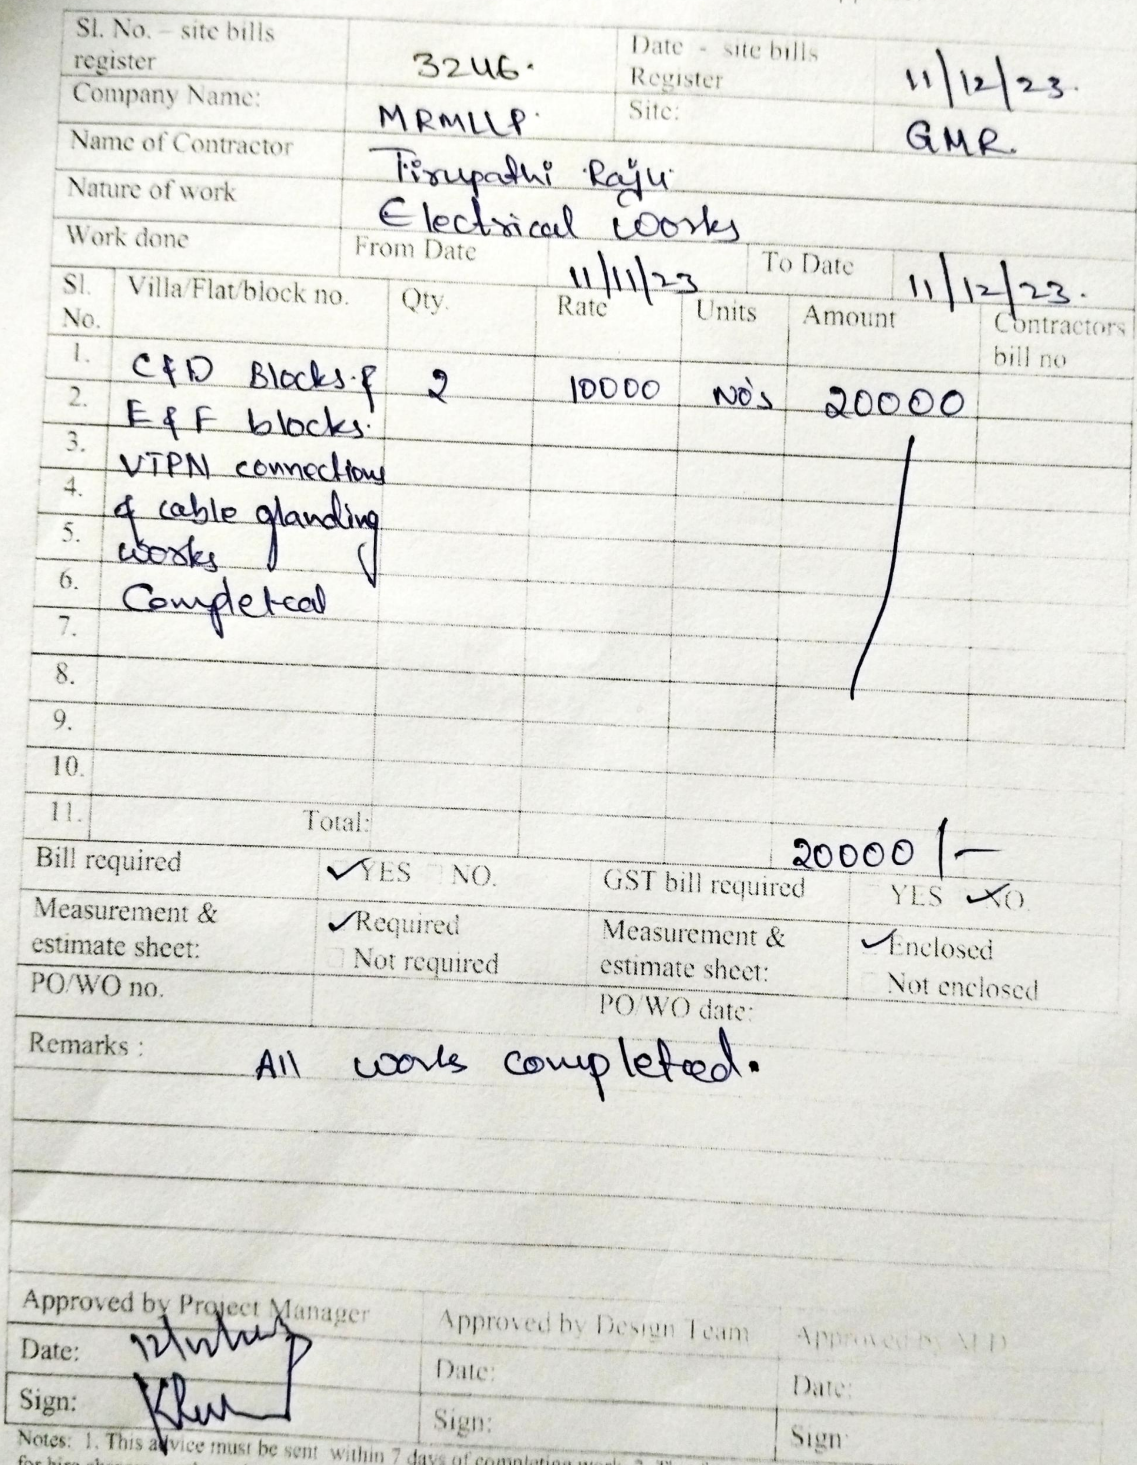 Sl. No. – site bills register 3246. Date - site bills Register 11/12/23.
Company Name: MRMLLP. Site: GMR.
Name of Contractor Tirupathi Raju
Nature of work Electrical Works
Work done From Date 11/11/23 To Date 11/12/23.
Sl. No. Villa/Flat/block no. Qty. Rate Units Amount Contractors bill no
1. C & D Blocks & 2 10000 No's 20000
2. E & F blocks.
3. VTPN connections
4. & cable glanding
5. works
6. Completed
7.
8.
9.
10.
11. Total: 20000/-
Bill required YES NO. GST bill required YES NO
Measurement & estimate sheet: Required Not required Measurement & estimate sheet: Enclosed Not enclosed
PO/WO no. PO/WO date:
Remarks : All works completed.
Approved by Project Manager Approved by Design Team Approved by
Date: Date: Date:
Sign: Sign: Sign
Notes: 1. This advice must be sent within 7 days of completing work.